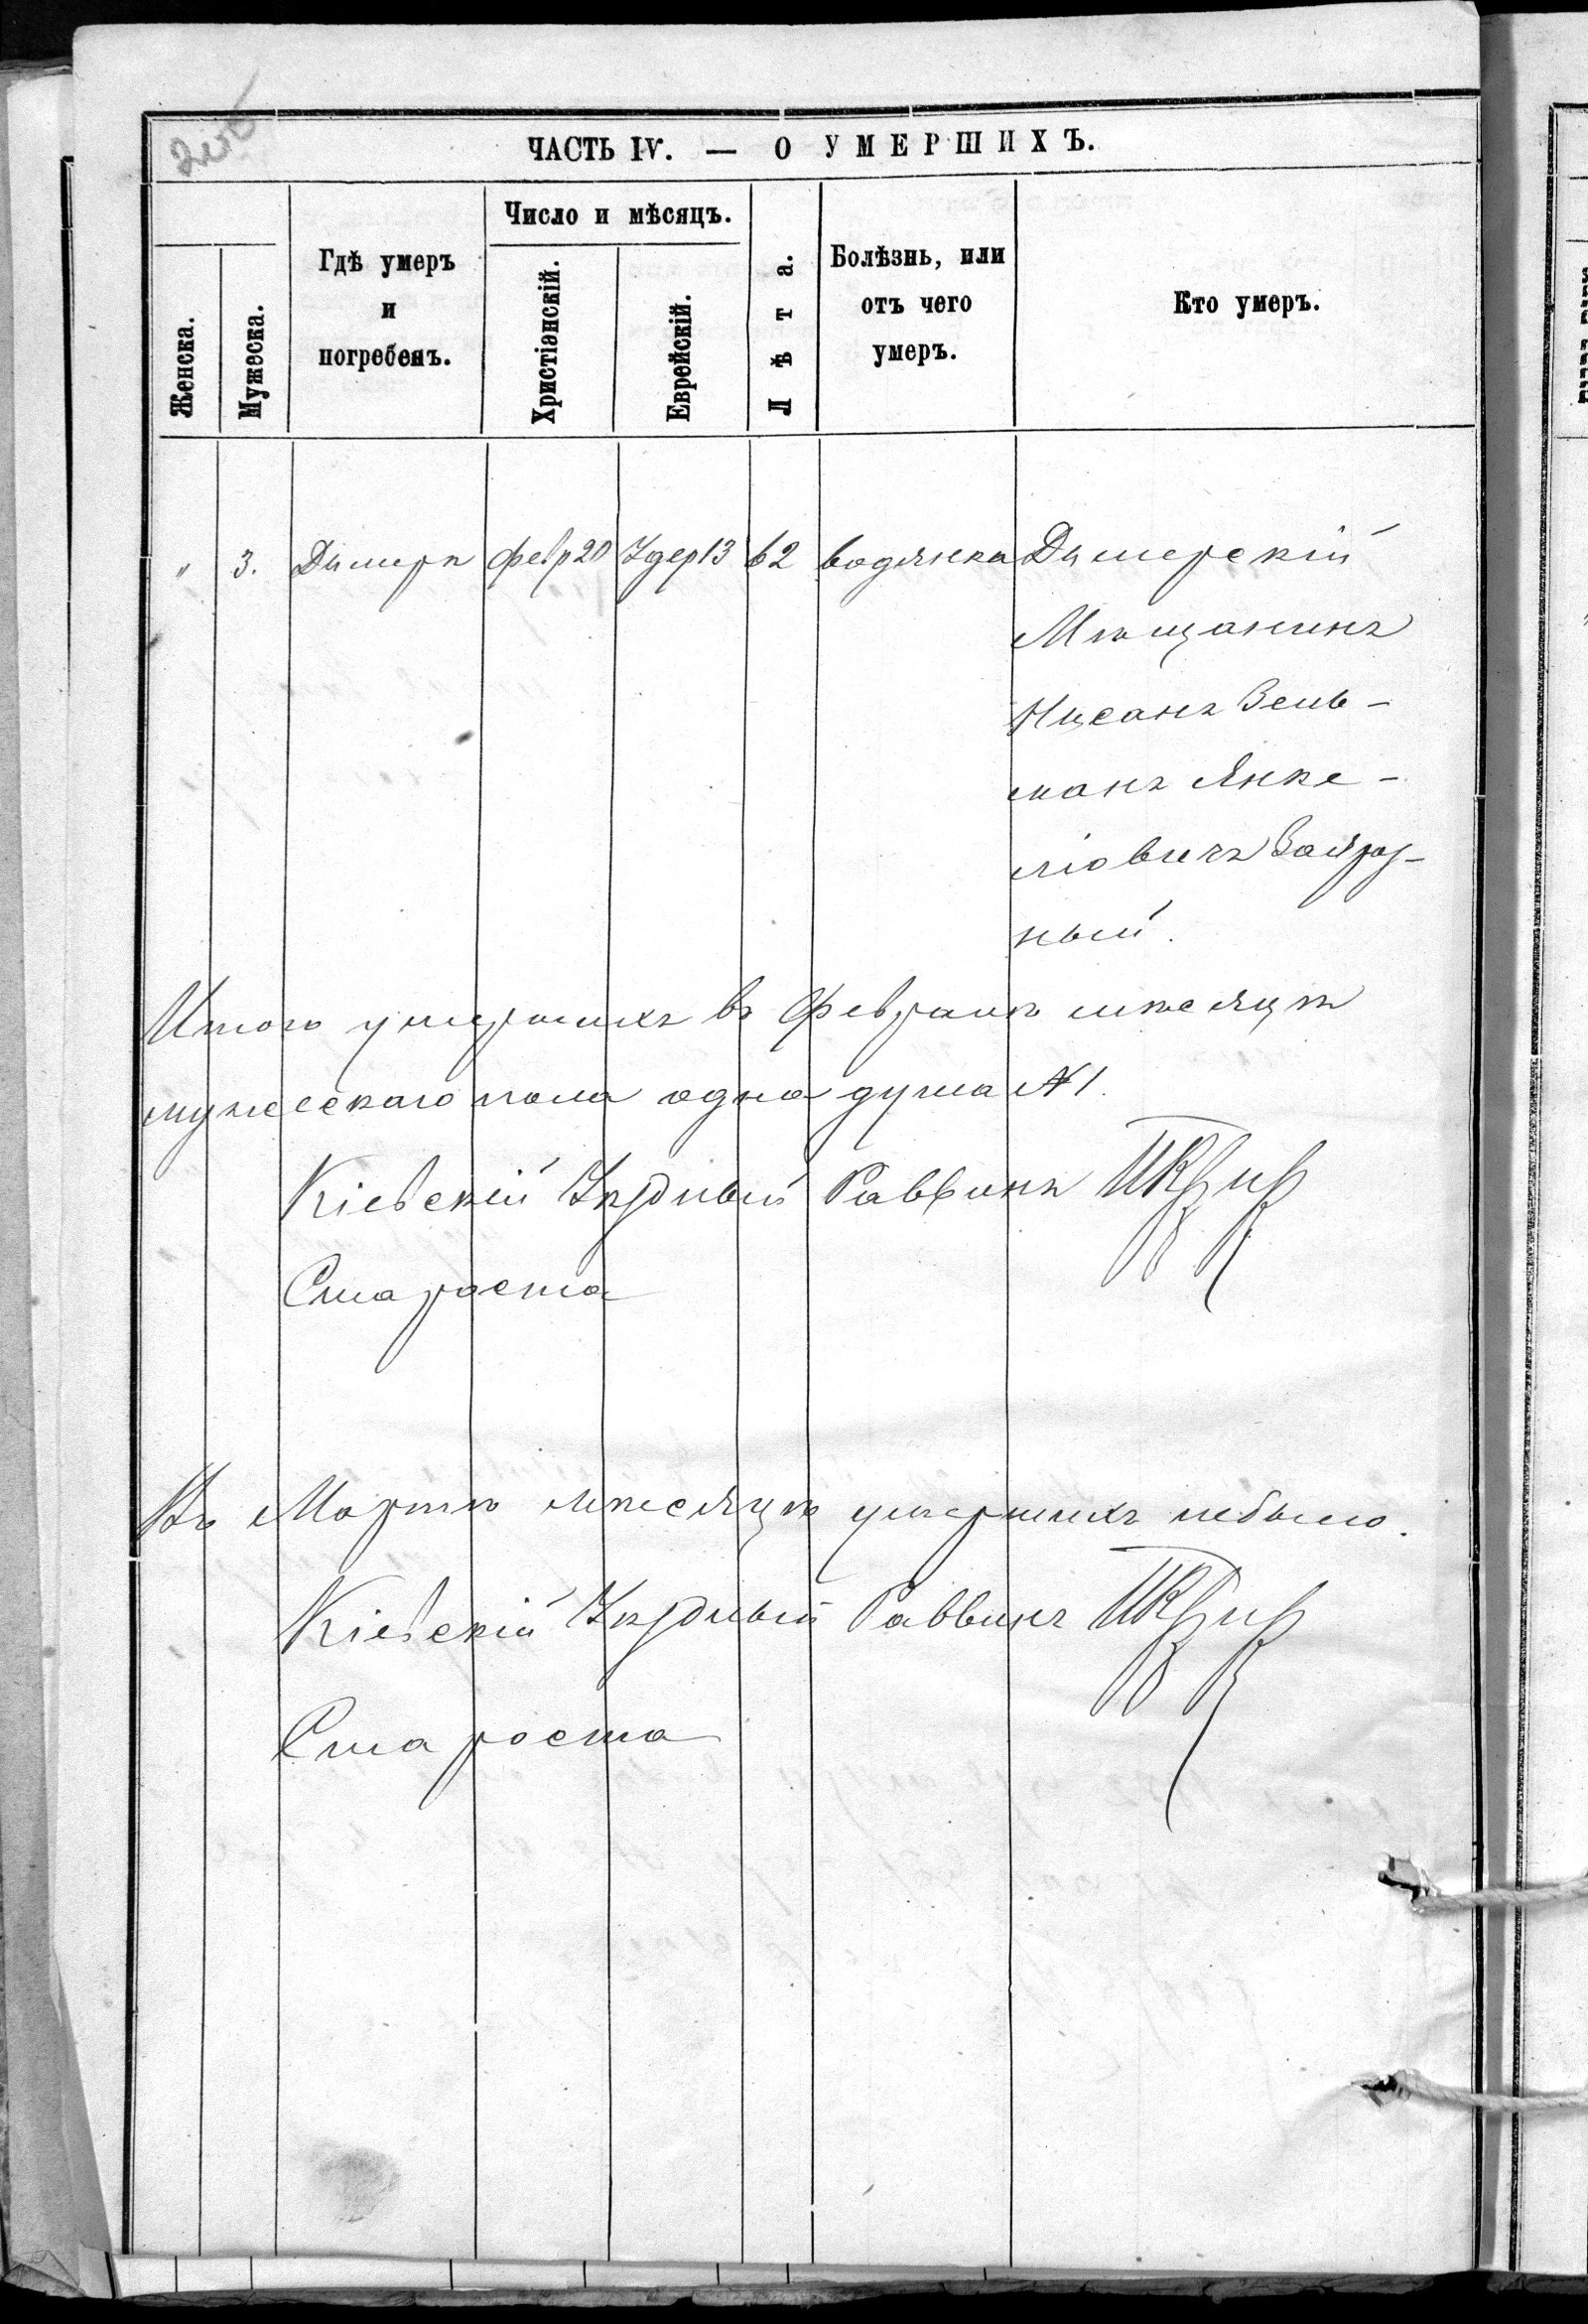 ЧАСТЬ IV. — О УМЕРШИХЪ.
Женска.
Мужеска.
Гдѣ умеръ
и
погребенъ.
Число и мѣсяцъ.
Христіанскій.
Еврейскій.
Лѣта.
Болѣзнь, или
отъ чего
умеръ.
Кто умеръ.
" 3. Дымеръ февр 20 Удер 13 62 водянка Дымерскій
Мѣщанинъ
Нисанъ Зель-
манъ Янке-
ліовичъ
ный.
Итого умершихъ въ Февралѣ мѣсяцѣ
мужескаго пола одна душа №1.
Кіевскій Уѣздный Раввинъ
Староста
Въ Мартѣ мѣсяцѣ умершихъ небыло.
Кіевскій Уѣздный Раввинъ
Староста